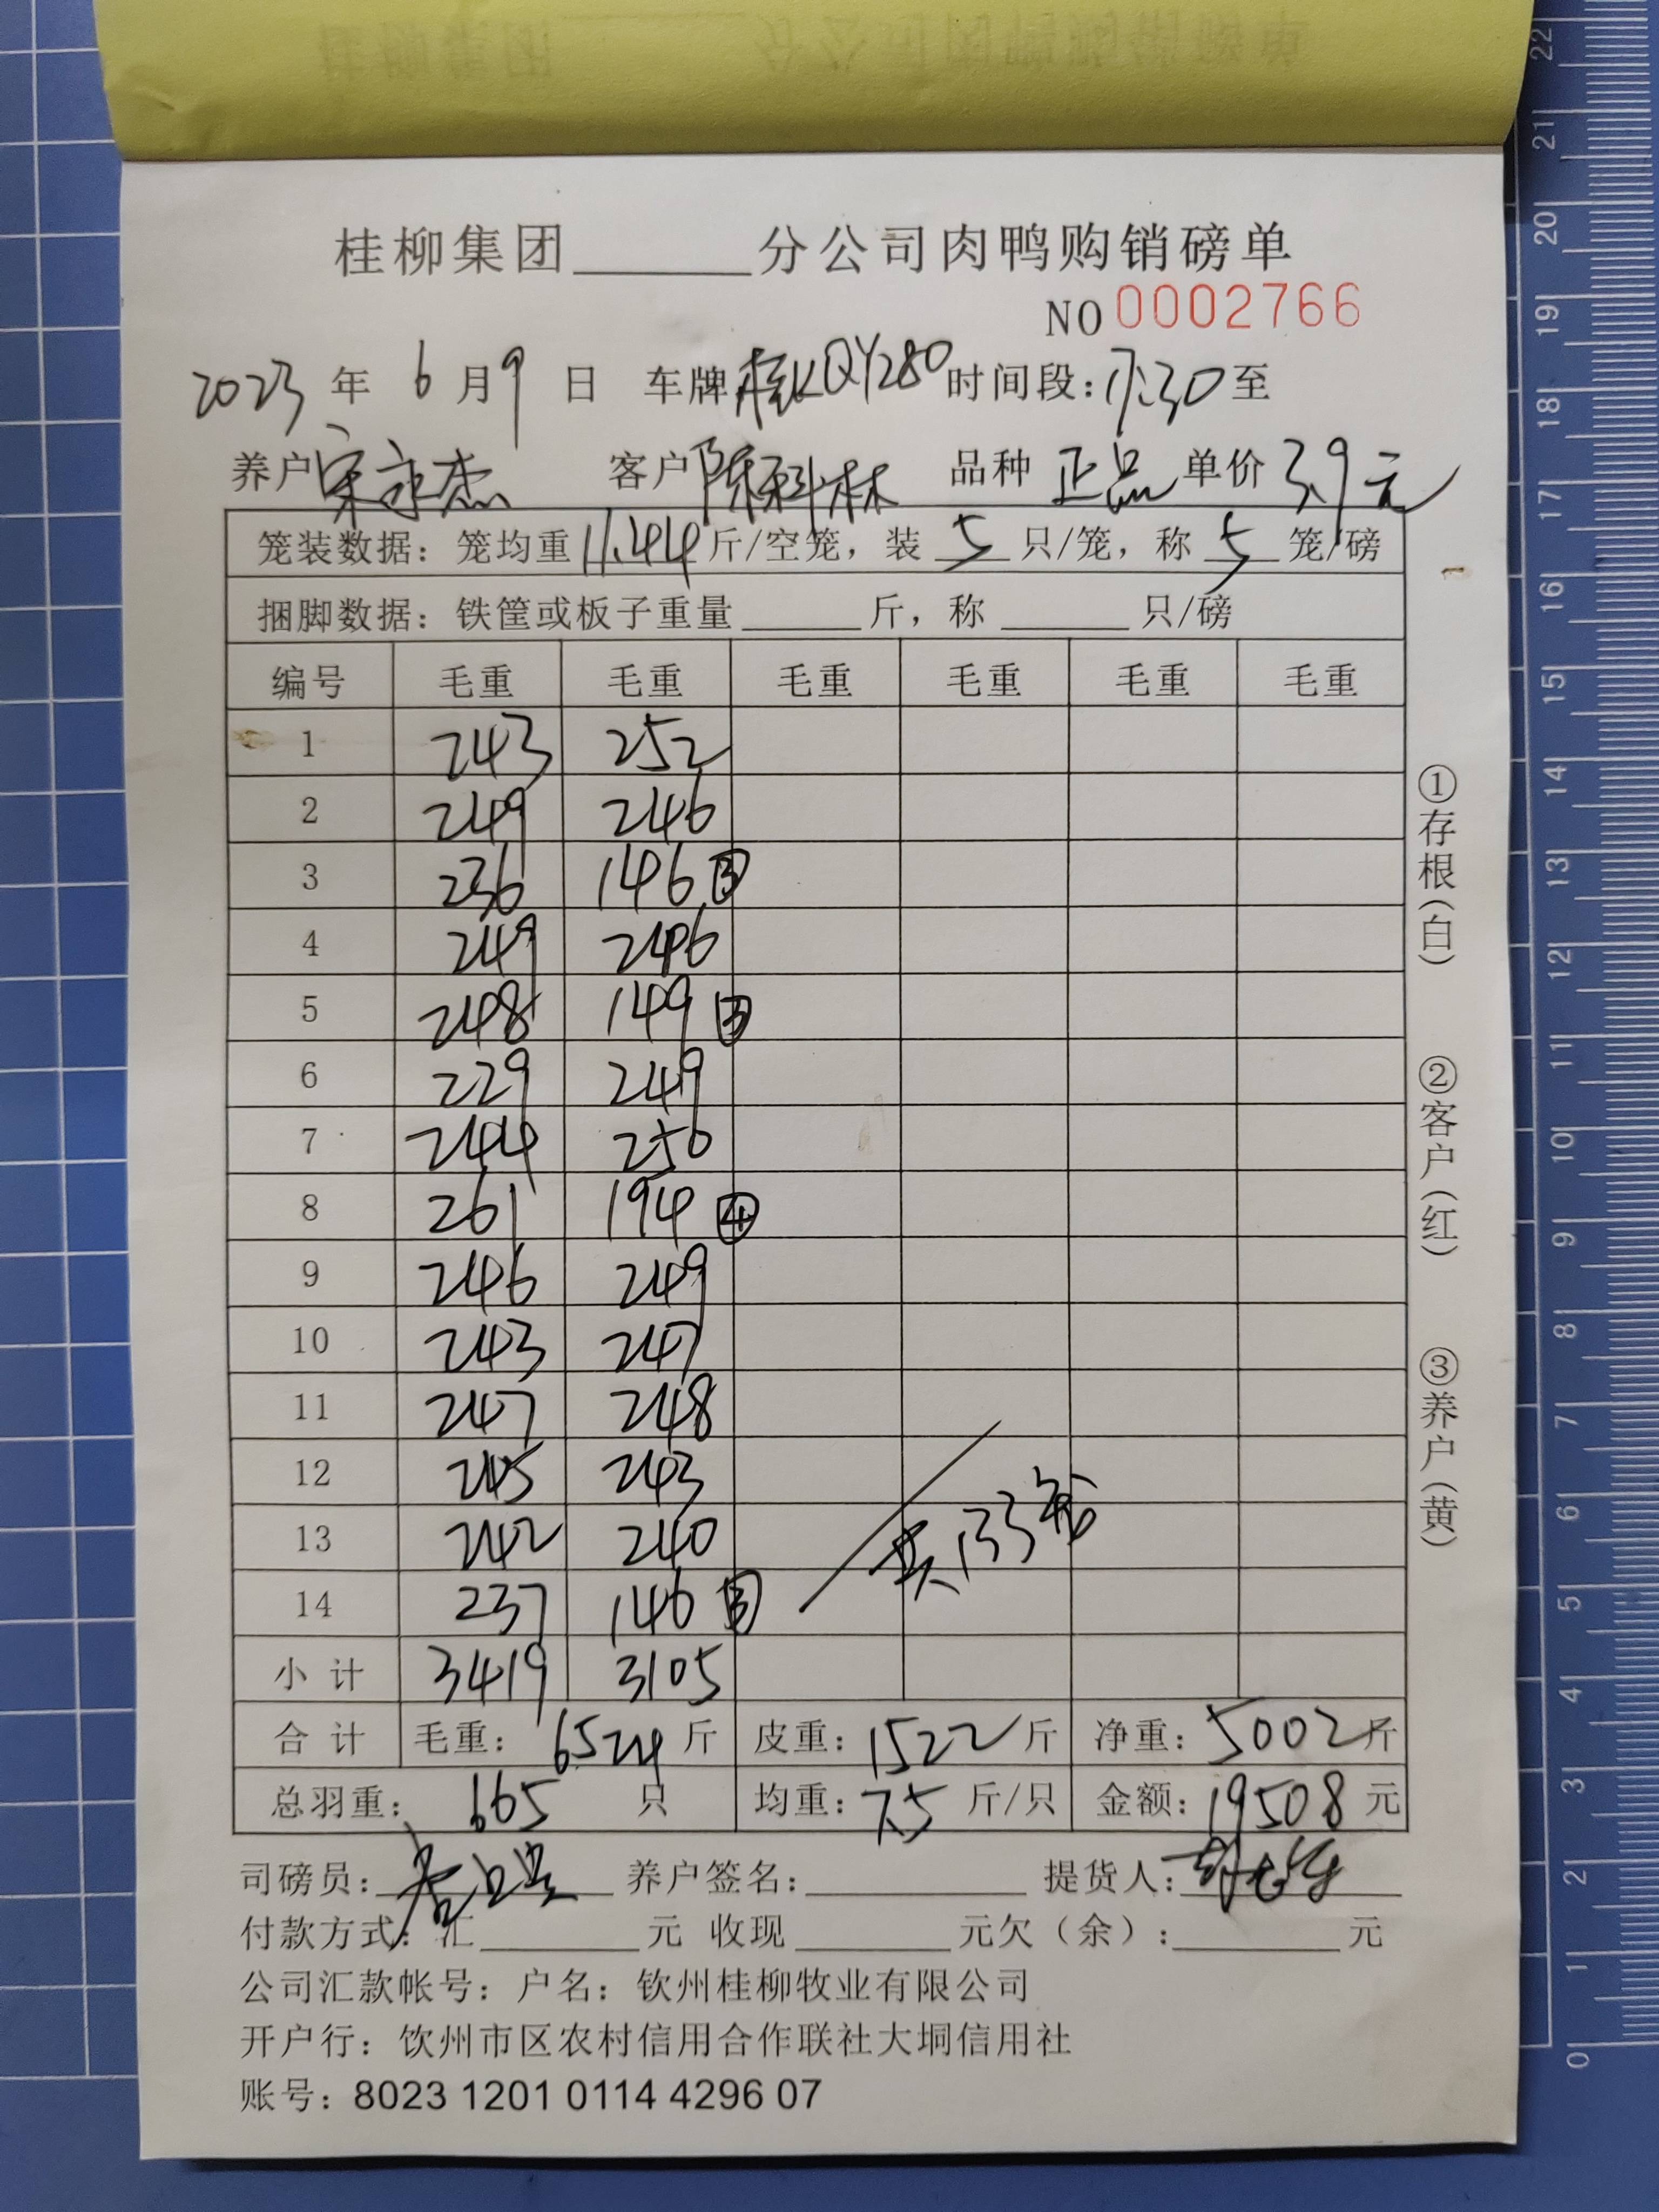 桂柳集团______分公司肉鸭购销磅单
NO 0002766
2023 年 6 月 9 日 车牌 桂KQY280 时间段：17:30 至
养户 宋永杰 客户 陈科林 品种 正品 单价 3.9元
笼装数据：笼均重 11.44 斤/空笼，装 5 只/笼，称 5 笼/磅
捆脚数据：铁筐或板子重量______斤，称______只/磅
编号 毛重 毛重 毛重 毛重 毛重 毛重
1 243 252
2 249 246
3 236 146 ③
4 249 246
5 248 149 ③
6 229 249
7 244 250
8 261 194 ④
9 246 249
10 243 247
11 247 248
12 245 243
13 242 240
共133笼
14 237 146 ③
小计 3419 3105
合计 毛重：6524 斤 皮重：1522 斤 净重：5002 斤
总羽重：665 只 均重：7.5 斤/只 金额：19508 元
司磅员： 养户签名：______ 提货人：
付款方式：汇______元 收现______元欠（余）：______元
公司汇款帐号：户名：钦州桂柳牧业有限公司
开户行：饮州市区农村信用合作联社大垌信用社
账号：8023 1201 0114 4296 07
①存根（白）
②客户（红）
③养户（黄）
22
21
20
19
18
17
16
15
14
13
12
11
10
9
8
7
6
5
4
3
2
1
0